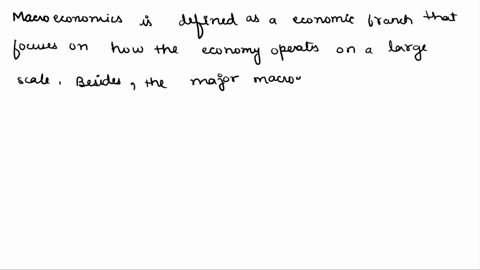 Macroeconomics is defined as a economic branch that
focuses on how the economy operates on a large
scale. Besides, the major macro